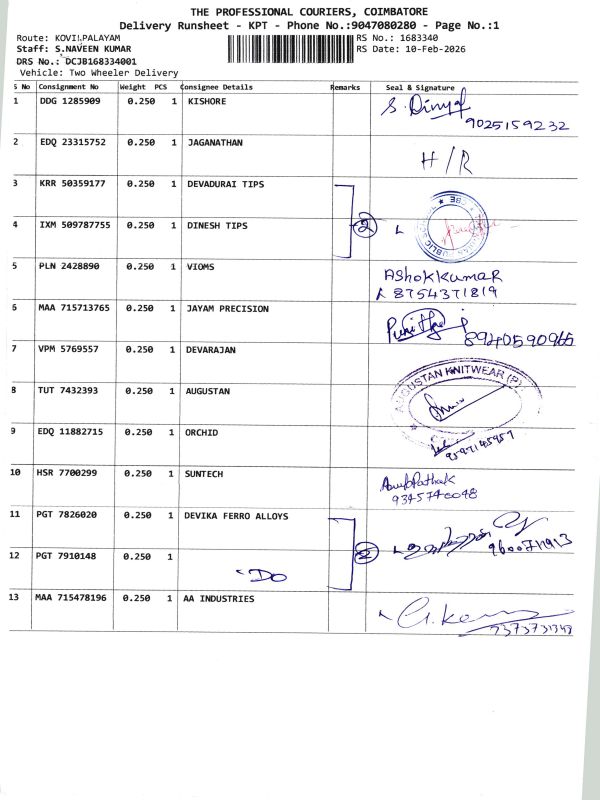 THE PROFESSIONAL COURIERS, COIMBATORE
Delivery Runsheet - KPT - Phone No.:9047080280 - Page No.:1
Route: KOVILPALAYAM
RS No.: 1683340
Staff: S.NAVEEN KUMAR
RS Date: 10-Feb-2026
DRS No.: DCJB168334001
Vehicle: Two Wheeler Delivery
S No Consignment No Weight PCS Consignee Details Remarks Seal & Signature
1 DDG 1285909 0.250 1 KISHORE
9025159232
2 EDQ 23315752 0.250 1 JAGANATHAN H/R
3 KRR 50359177 0.250 1 DEVADURAI TIPS
4 IXM 509787755 0.250 1 DINESH TIPS 2
5 PLN 2428890 0.250 1 VIOMS ASHOKKUMAR
8754371819
6 MAA 715713765 0.250 1 JAYAM PRECISION
7 VPM 5769557 0.250 1 DEVARAJAN
8 TUT 7432393 0.250 1 AUGUSTAN AUGUSTAN KNITWEAR (P)
9 EDQ 11882715 0.250 1 ORCHID
10 HSR 7700299 0.250 1 SUNTECH
11 PGT 7826020 0.250 1 DEVIKA FERRO ALLOYS
12 PGT 7910148 0.250 1 "DO 2
13 MAA 715478196 0.250 1 AA INDUSTRIES